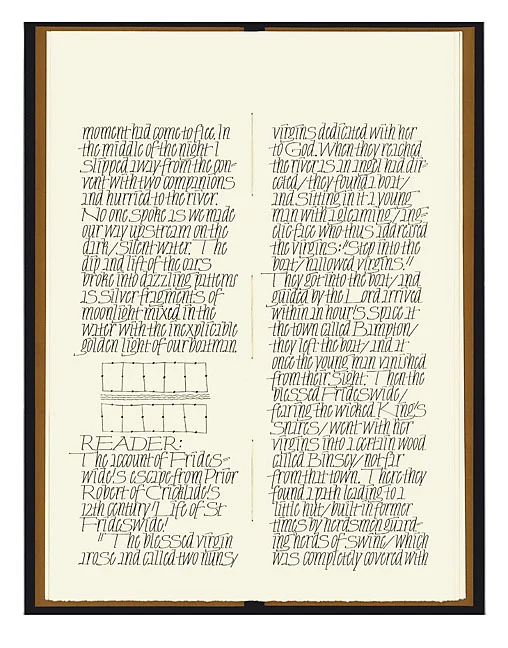 moment had come to flee. In
the middle of the night I
slipped away from the con-
vent with two companions
and hurried to the river.
No one spoke as we made
our way upstream on the
dark/silent water. The
dip and lift of the oars
broke into dazzling patterns
as silver fragments of
moonlight mixed in the
water with the inexplicable
golden light of our boatman.
READER:
The account of Frides-
wide's escape from Prior
Robert of Cricklade's
12th century 'Life of St
Frideswide'
"The blessed virgin
arose and called two nuns/
virgins dedicated with her
to God. When they reached
the river as an angel had dir-
ected/they found a boat/
and sitting in it a young
man with a gleaming/ang-
elic face who thus addressed
the virgins: "Step into the
boat/hallowed virgins."
They got into the boat/and
guided by the Lord arrived
within an hour's space at
the town called Bampton/
they left the boat/and at
once the young man vanished
from their sight. Then the
blessed Frideswide/
fearing the wicked King's
snares/went with her
virgins into a certain wood
called Binsey/not far
from that town. There they
found a path leading to a
little hut/built in former
times by herdsmen guard-
ing herds of swine/which
was completely covered with